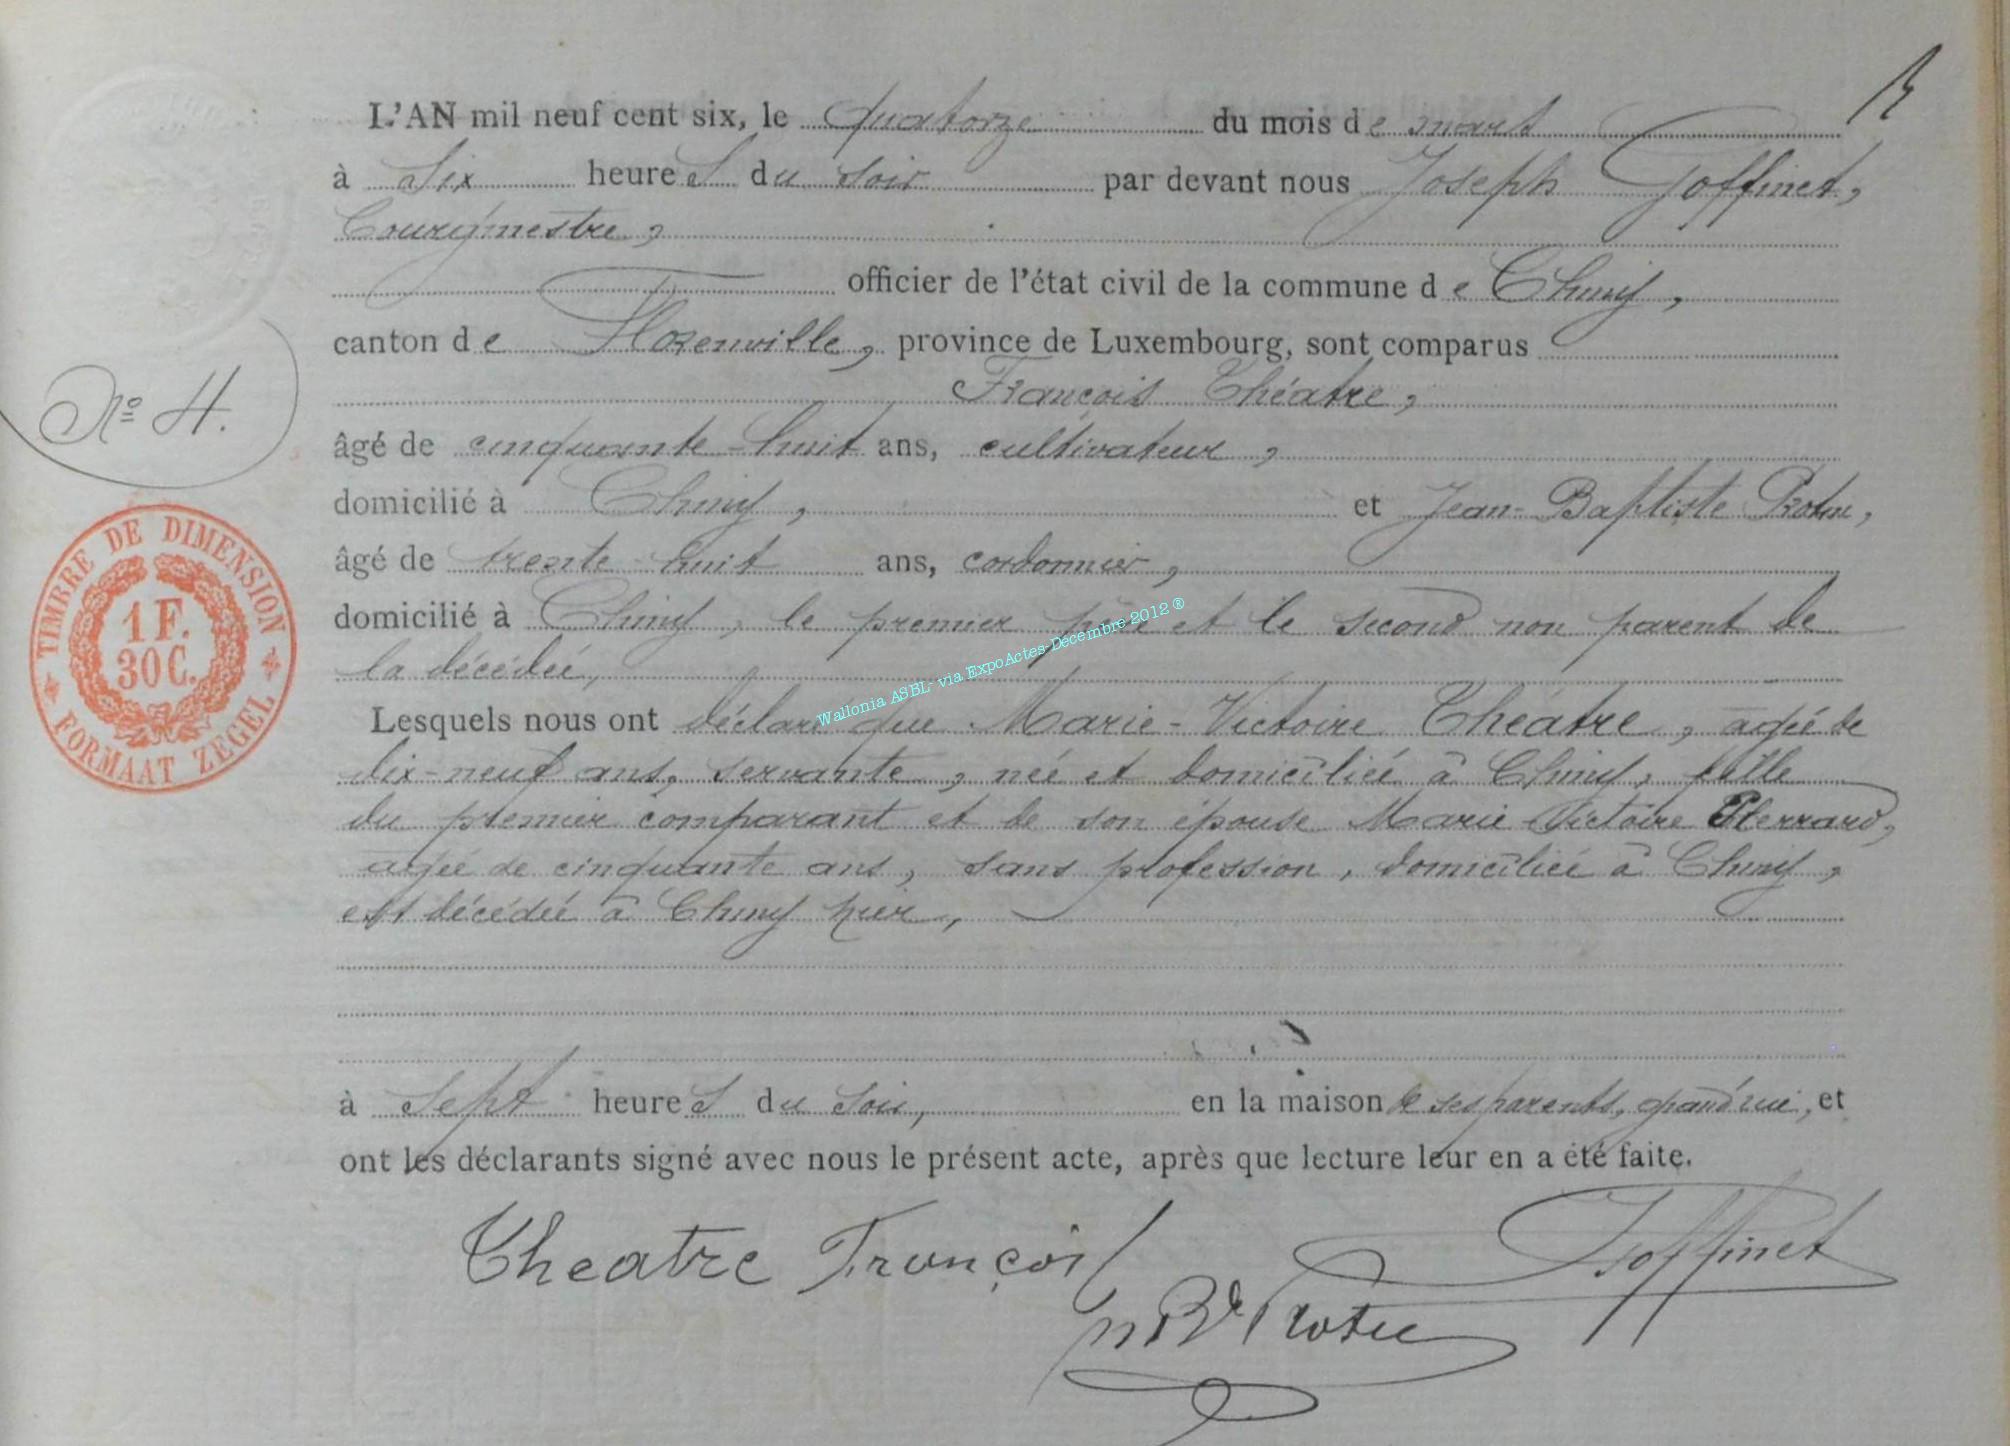 L'AN mil neuf cent six, le quatorze du mois de mars
à six heures du soir par devant nous Joseph Goffinet,
Bourgmestre,
officier de l'état civil de la commune de Chiny,
canton de Florenville, province de Luxembourg, sont comparus
François Théatre,
Nº 4.
âgé de cinquante-huit ans, cultivateur,
domicilié à Chiny, et Jean-Baptiste
âgé de trente-huit ans, cordonnier,
domicilié à Chiny, le premier père et le second non parent de
la décédée,
Lesquels nous ont déclaré que Marie-Victoire Théatre, agée de
dix-neuf ans, servante, née et domiciliée à Chiny, fille
du premier comparant et de son épouse Marie Victoire
agée de cinquante ans, sans profession, domiciliée à Chiny,
est décédée à Chiny hier,
à sept heures du soir, en la maison de ses parents, grand'rue, et
ont les déclarants signé avec nous le présent acte, après que lecture leur en a été faite.
Theatre François
Goffinet
TIMBRE DE DIMENSION
1 F.
30 C.
FORMAAT ZEGEL
Wallonia ASBL- via ExpoActes-Décembre 2012 ®